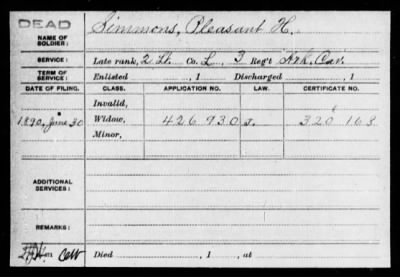 DEAD
NAME OF SOLDIER: Simmons, Pleasant H.
SERVICE: Late rank, 2 Lt. Co. L, 3 Reg't Ark. Cav.
TERM OF SERVICE: Enlisted , 1 Discharged , 1
DATE OF FILING. CLASS. APPLICATION NO. LAW. CERTIFICATE NO.
Invalid,
1890, June 30 Widow, 426 930 J. 320 163
Minor,
ADDITIONAL SERVICES:
REMARKS:
Died , 1 , at